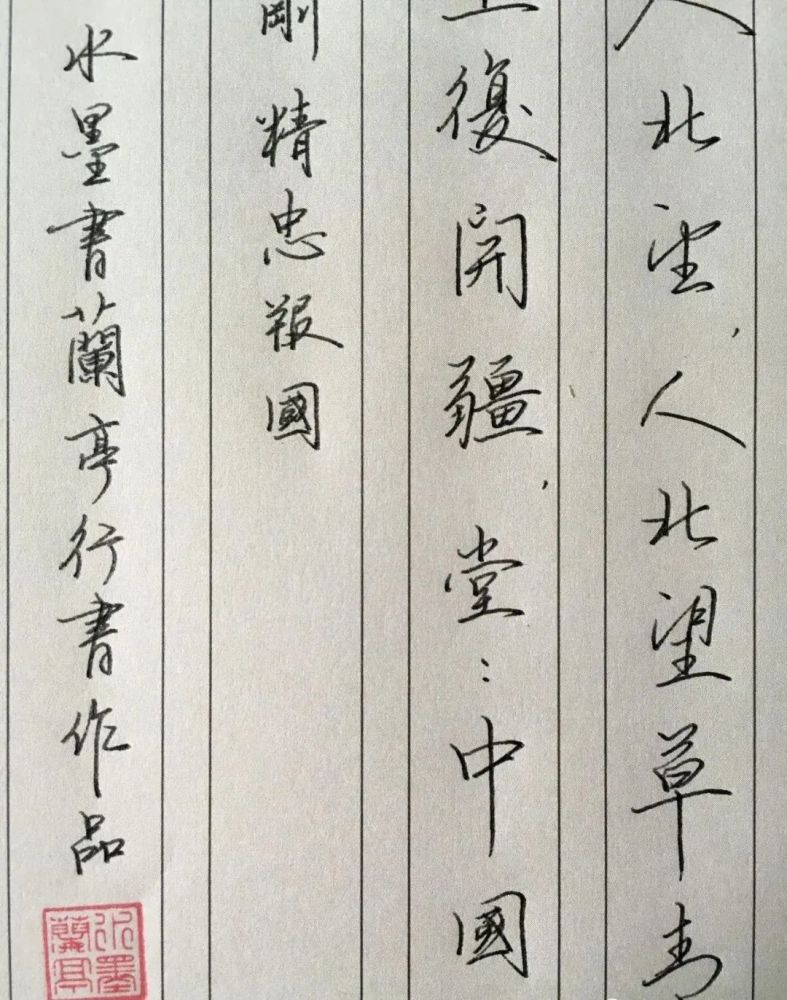 人北望,人北望草青
復開疆,堂:中國
剛 精忠報國
水墨書蘭亭行書作品
水墨
蘭亭